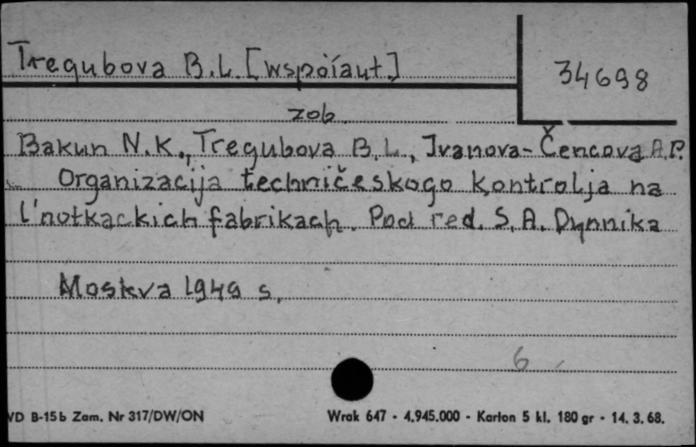 Tregubova B.L. [współaut.]
34698
zob.
Bakun N.K., Tregubova B.L., Ivanova-Čencova A.P.
Organizacija techničeskogo kontrolja na
l'notkackich fabrikach. Pod red. S.A. Dynnika
Moskva 1949 s.
6
WD B-15b Zam. Nr 317/DW/ON
Wrak 647 - 4.945.000 - Karton 5 kl. 180 gr - 14. 3. 68.